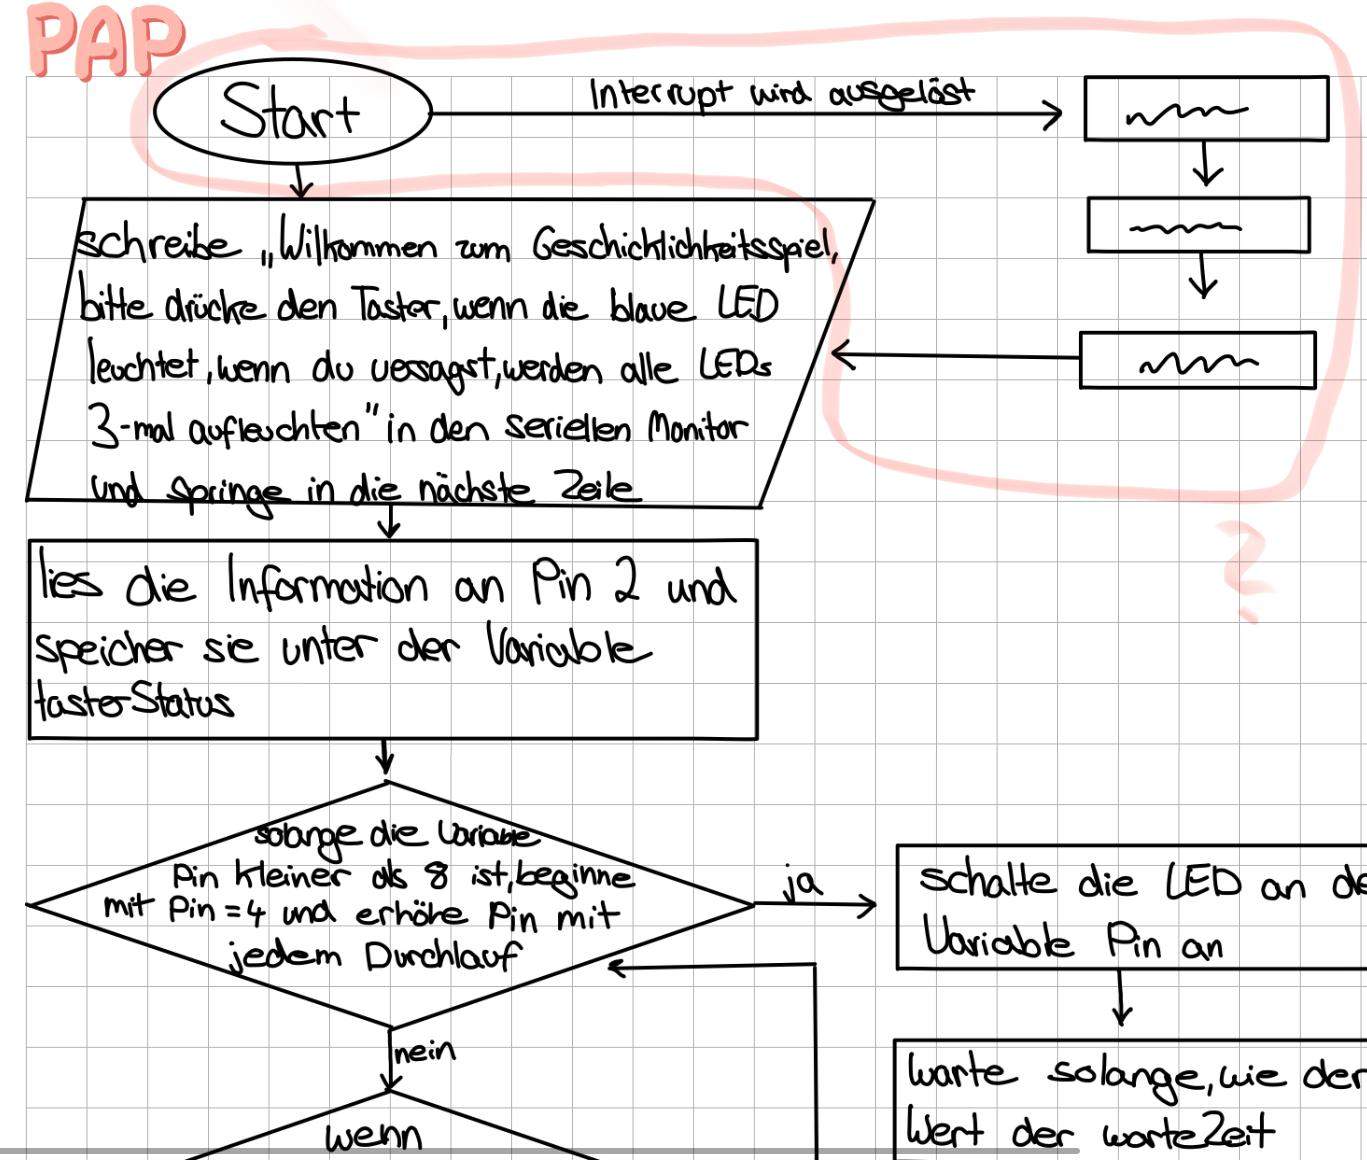 PAP
Start
Interrupt wird ausgelöst
schreibe „Wilkommen zum Geschicklichkeitsspiel,
bitte drücke den Taster, wenn die blaue LED
leuchtet, wenn du versagst, werden alle LEDs
3-mal aufleuchten" in den seriellen Monitor
und springe in die nächste Zeile
lies die Information an Pin 2 und
speicher sie unter der Variable
tasterStatus
solange die Variable
Pin kleiner als 8 ist, beginne
mit Pin = 4 und erhöhe Pin mit
jedem Durchlauf
ja
schalte die LED an de
Variable Pin an
nein
warte solange, wie der
Wert der warteZeit
wenn
?